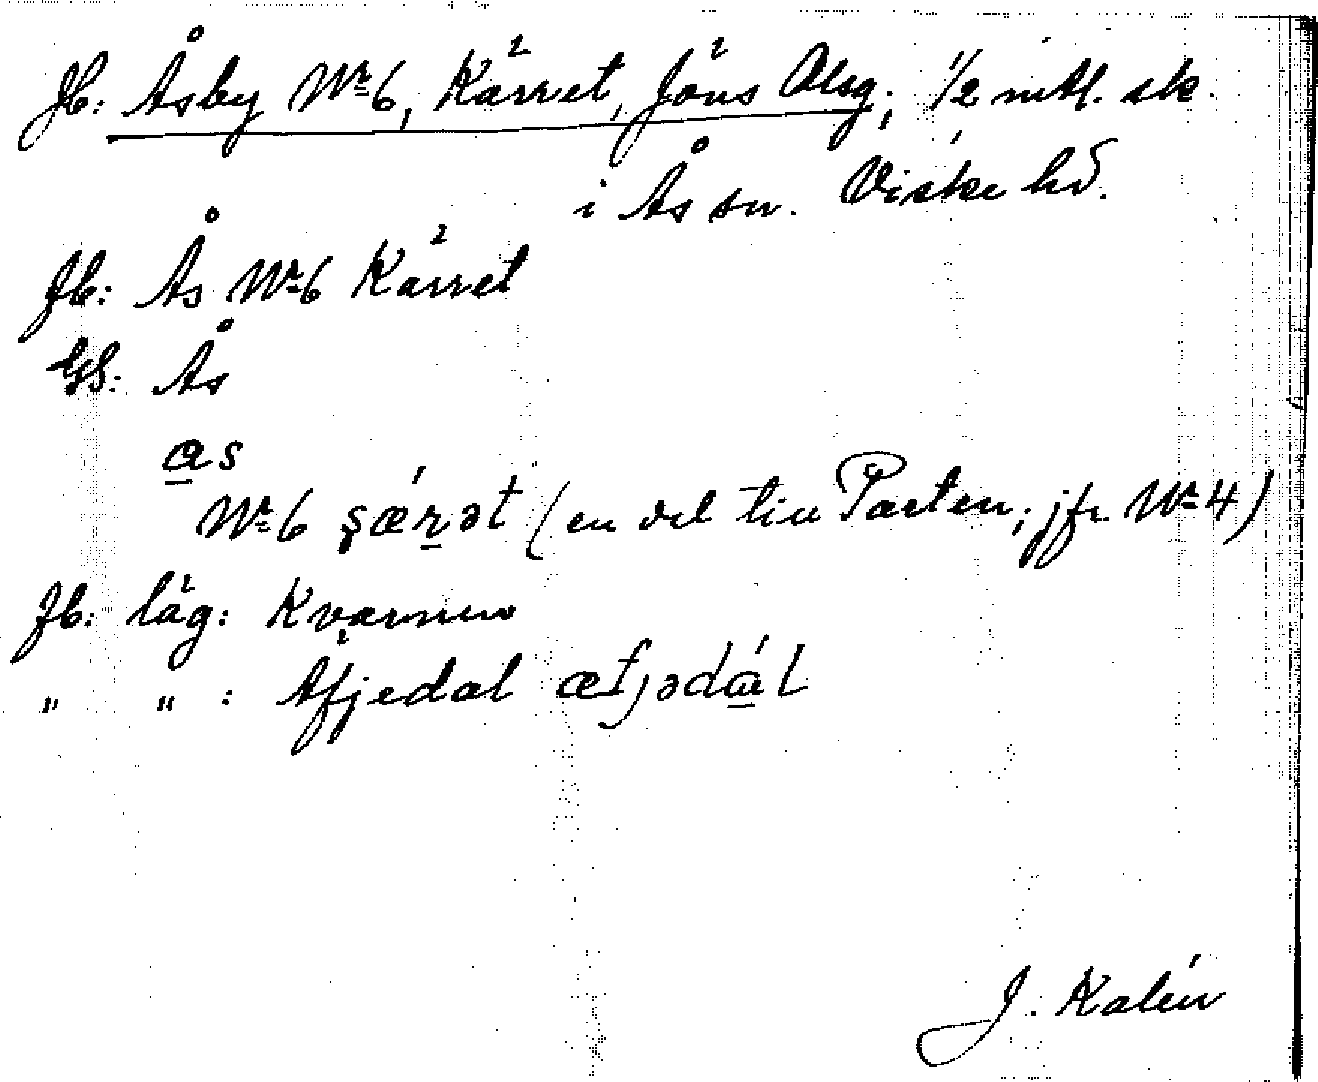 Jb: Åsby Nr 6, Kärret, Jöns Olsg; 1/2 mtl. sk.
i Ås sn. Viske hd.
Jb: Ås Nr 6 Kärret
GS: Ås
as
Nr 6 şǽrət (en del till Parten; jfr Nr 4)
Jb: läg: Kvarnen
" " : Äfjedal æfjədál
J. Kalén